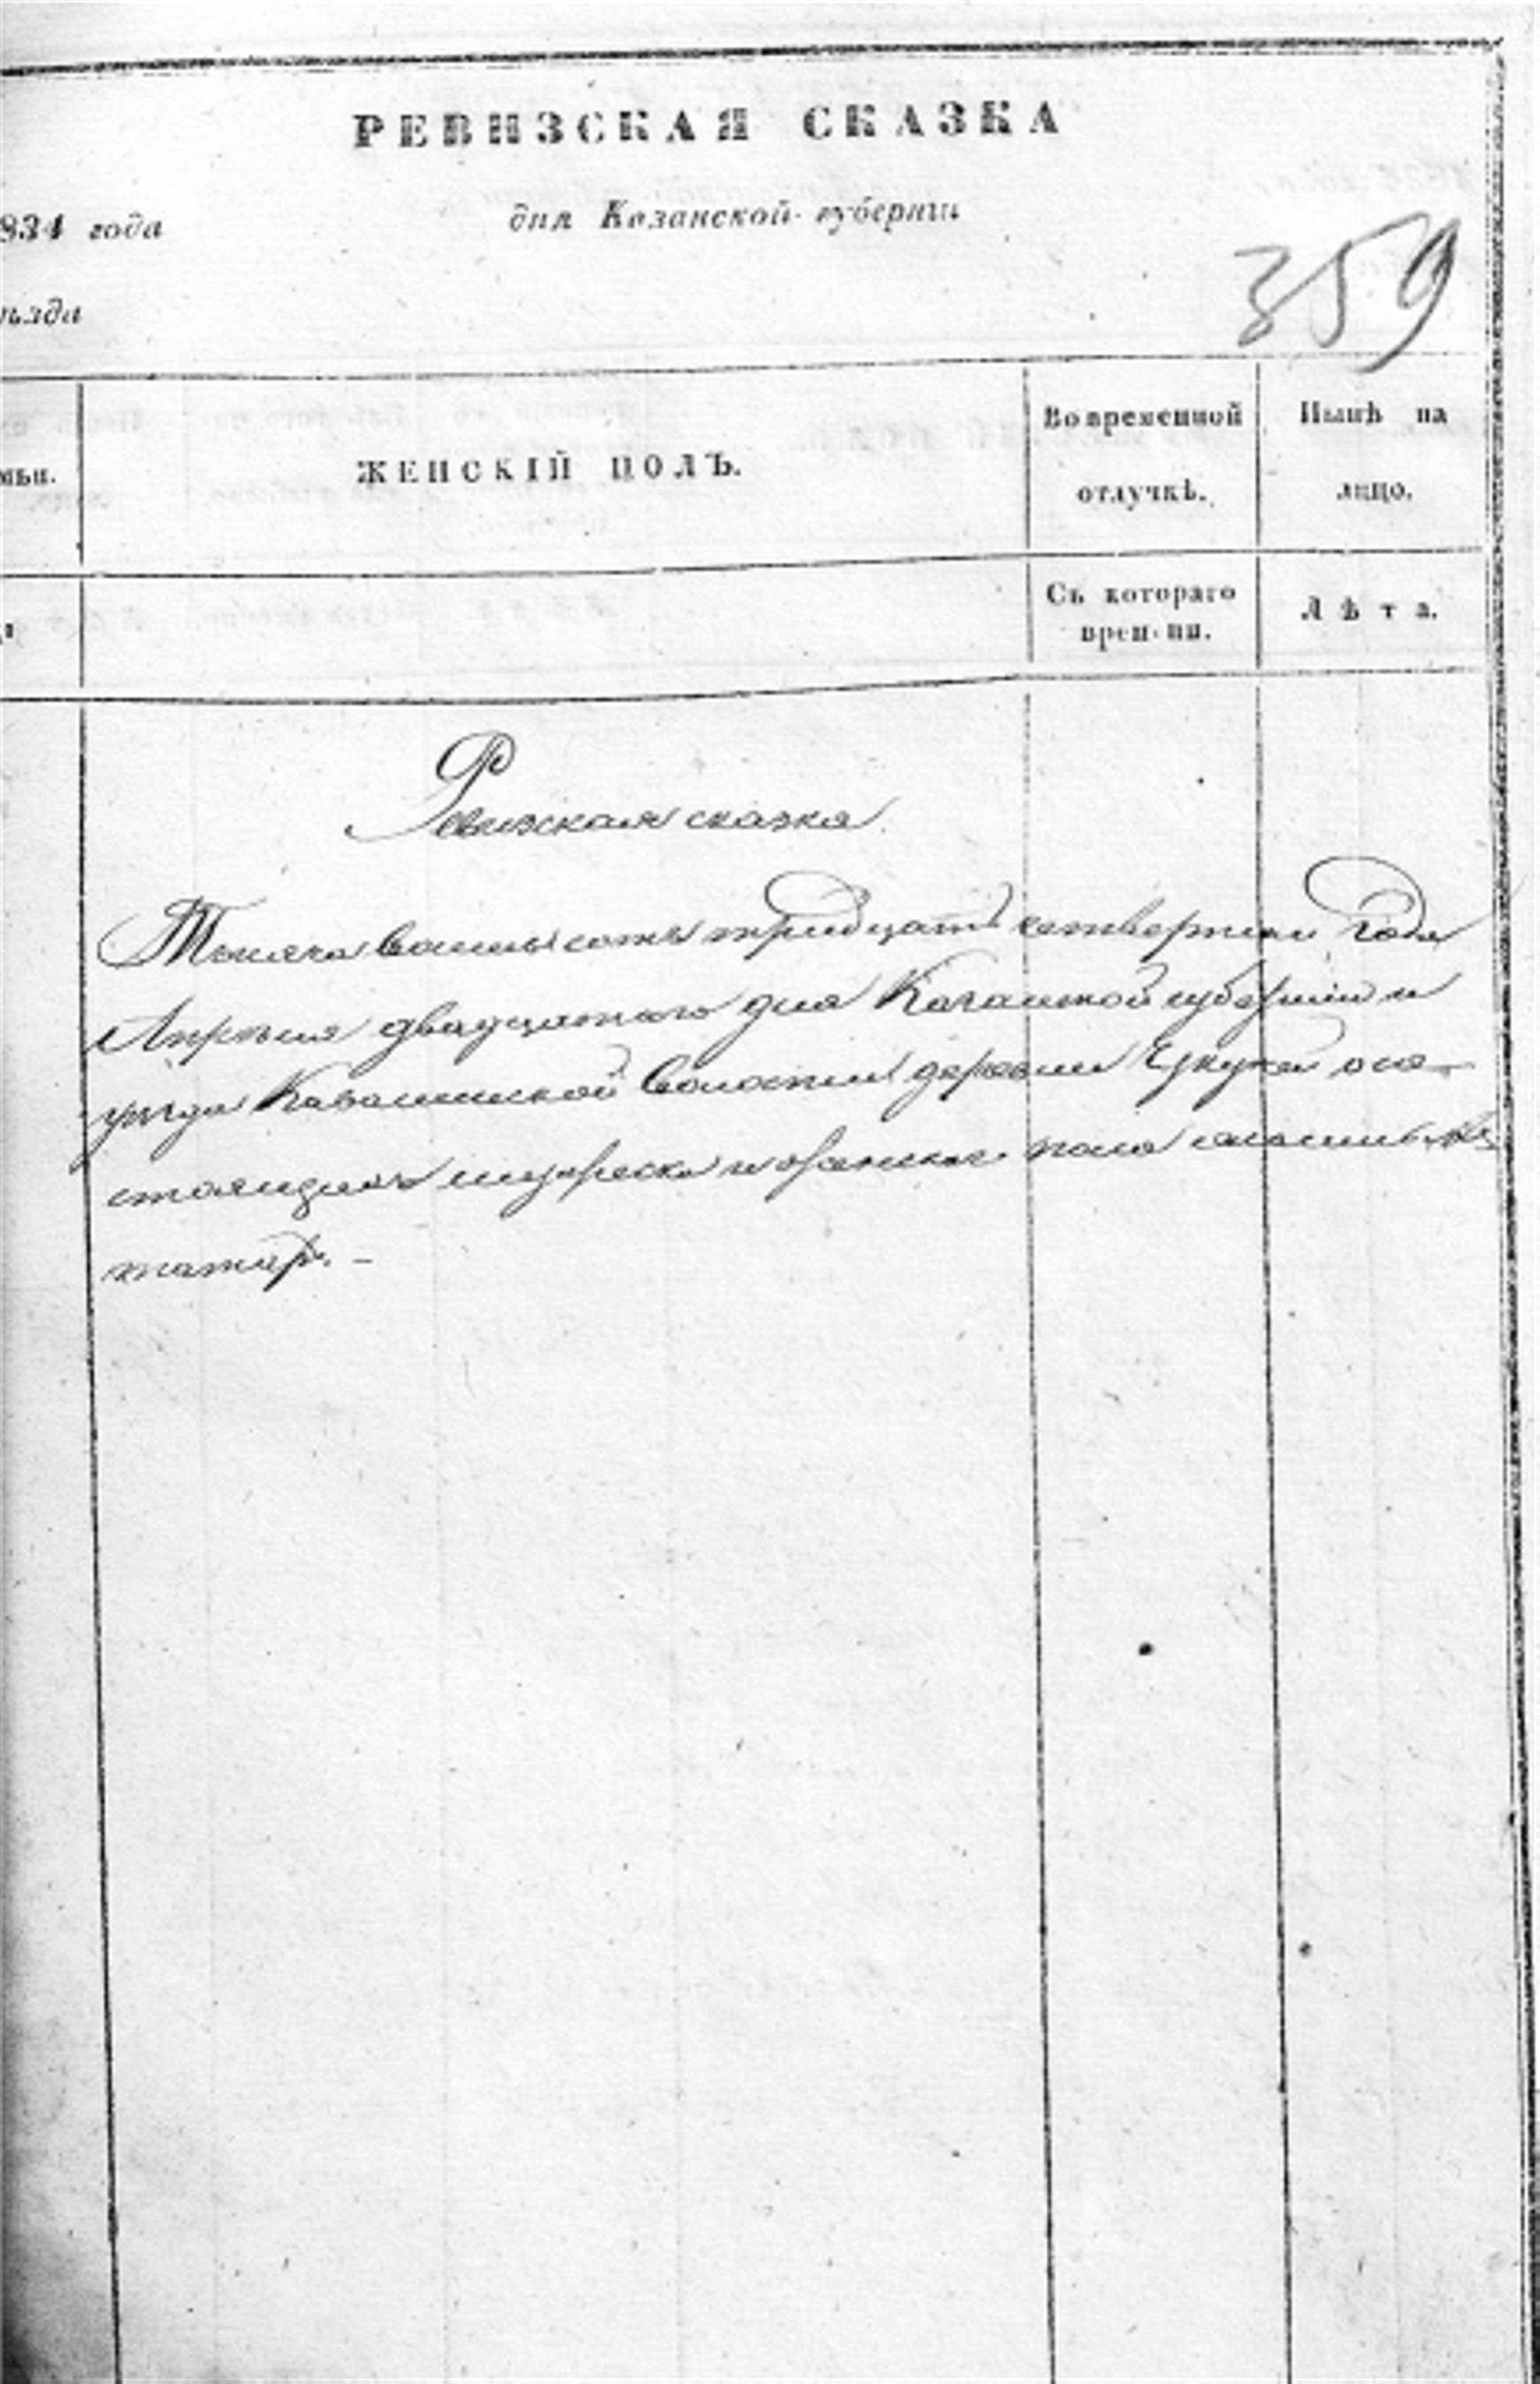 РЕВИЗСКАЯ СКАЗКА
834 года дня Казанской губерніи
ѣзда
359
мьи. ЖЕНСКІЙ ПОЛЪ. Во временной отлучкѣ. Нынѣ на лицо.
Съ котораго времени. Лѣта.
Ревизская сказка
Тысяча восемьсотъ тридцать четвертаго года
Апрѣля двадцатаго дня Казанской губерніи и
уѣзда Кавалинской волости деревни о со-
стоящихъ мужеска и женскаго пола
татар. –